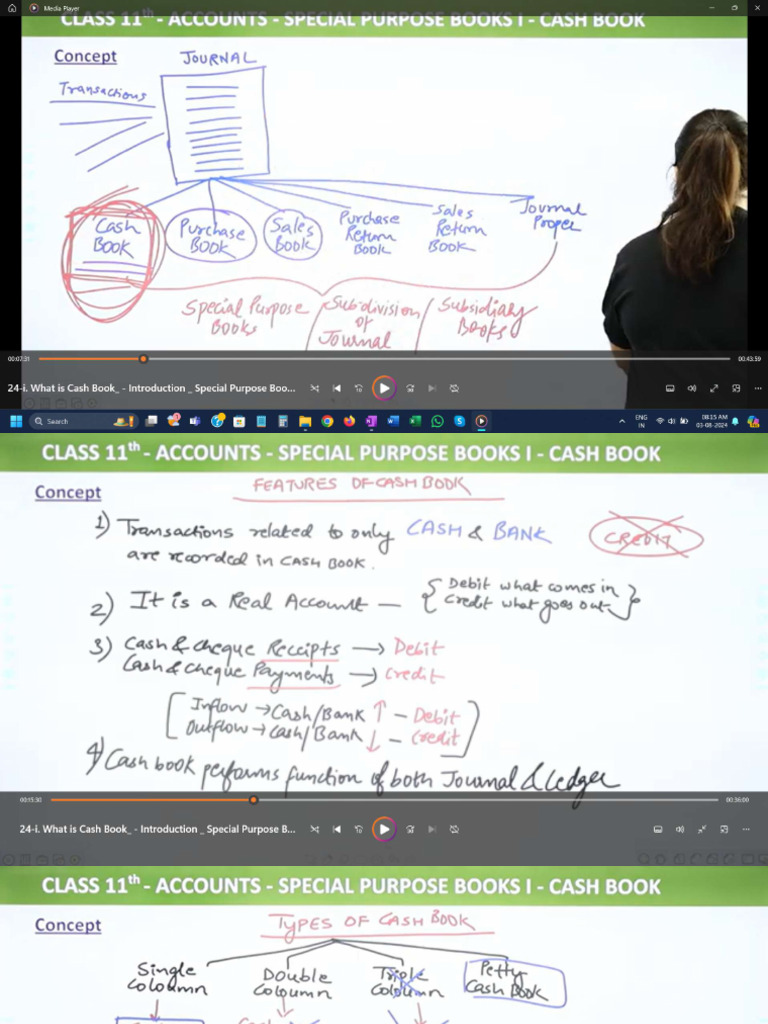 Media Player
CLASS 11th - ACCOUNTS - SPECIAL PURPOSE BOOKS I - CASH BOOK
Concept
JOURNAL
Transactions
Cash BOOK
Purchase BOOK
Sales BOOK
Purchase Return BOOK
Sales Return BOOK
Journal Proper
Special Purpose BOOKS / Subdivision of Journal / Subsidiary Books
00:07:31
00:43:59
24-i. What is Cash Book_ - Introduction _ Special Purpose Boo...
Search
ENG
IN
08:15 AM
03-08-2024
CLASS 11th - ACCOUNTS - SPECIAL PURPOSE BOOKS I - CASH BOOK
Concept
FEATURES OF CASH BOOK
1) Transactions related to only CASH & BANK
are recorded in CASH BOOK.
CREDIT
2) It is a Real Account — { Debit what comes in
Credit what goes out }
3) Cash & cheque Receipts → Debit
Cash & cheque Payments → Credit
[ Inflow → Cash/Bank ↑ - Debit
Outflow → Cash/Bank ↓ - Credit ]
4) Cash book performs function of both Journal & Ledger
00:15:30
00:36:00
24-i. What is Cash Book_ - Introduction _ Special Purpose B...
CLASS 11th - ACCOUNTS - SPECIAL PURPOSE BOOKS I - CASH BOOK
Concept
TYPES OF CASH BOOK
Single Coloumn
Double Coloumn
Triple Coloumn
Petty Cash Book